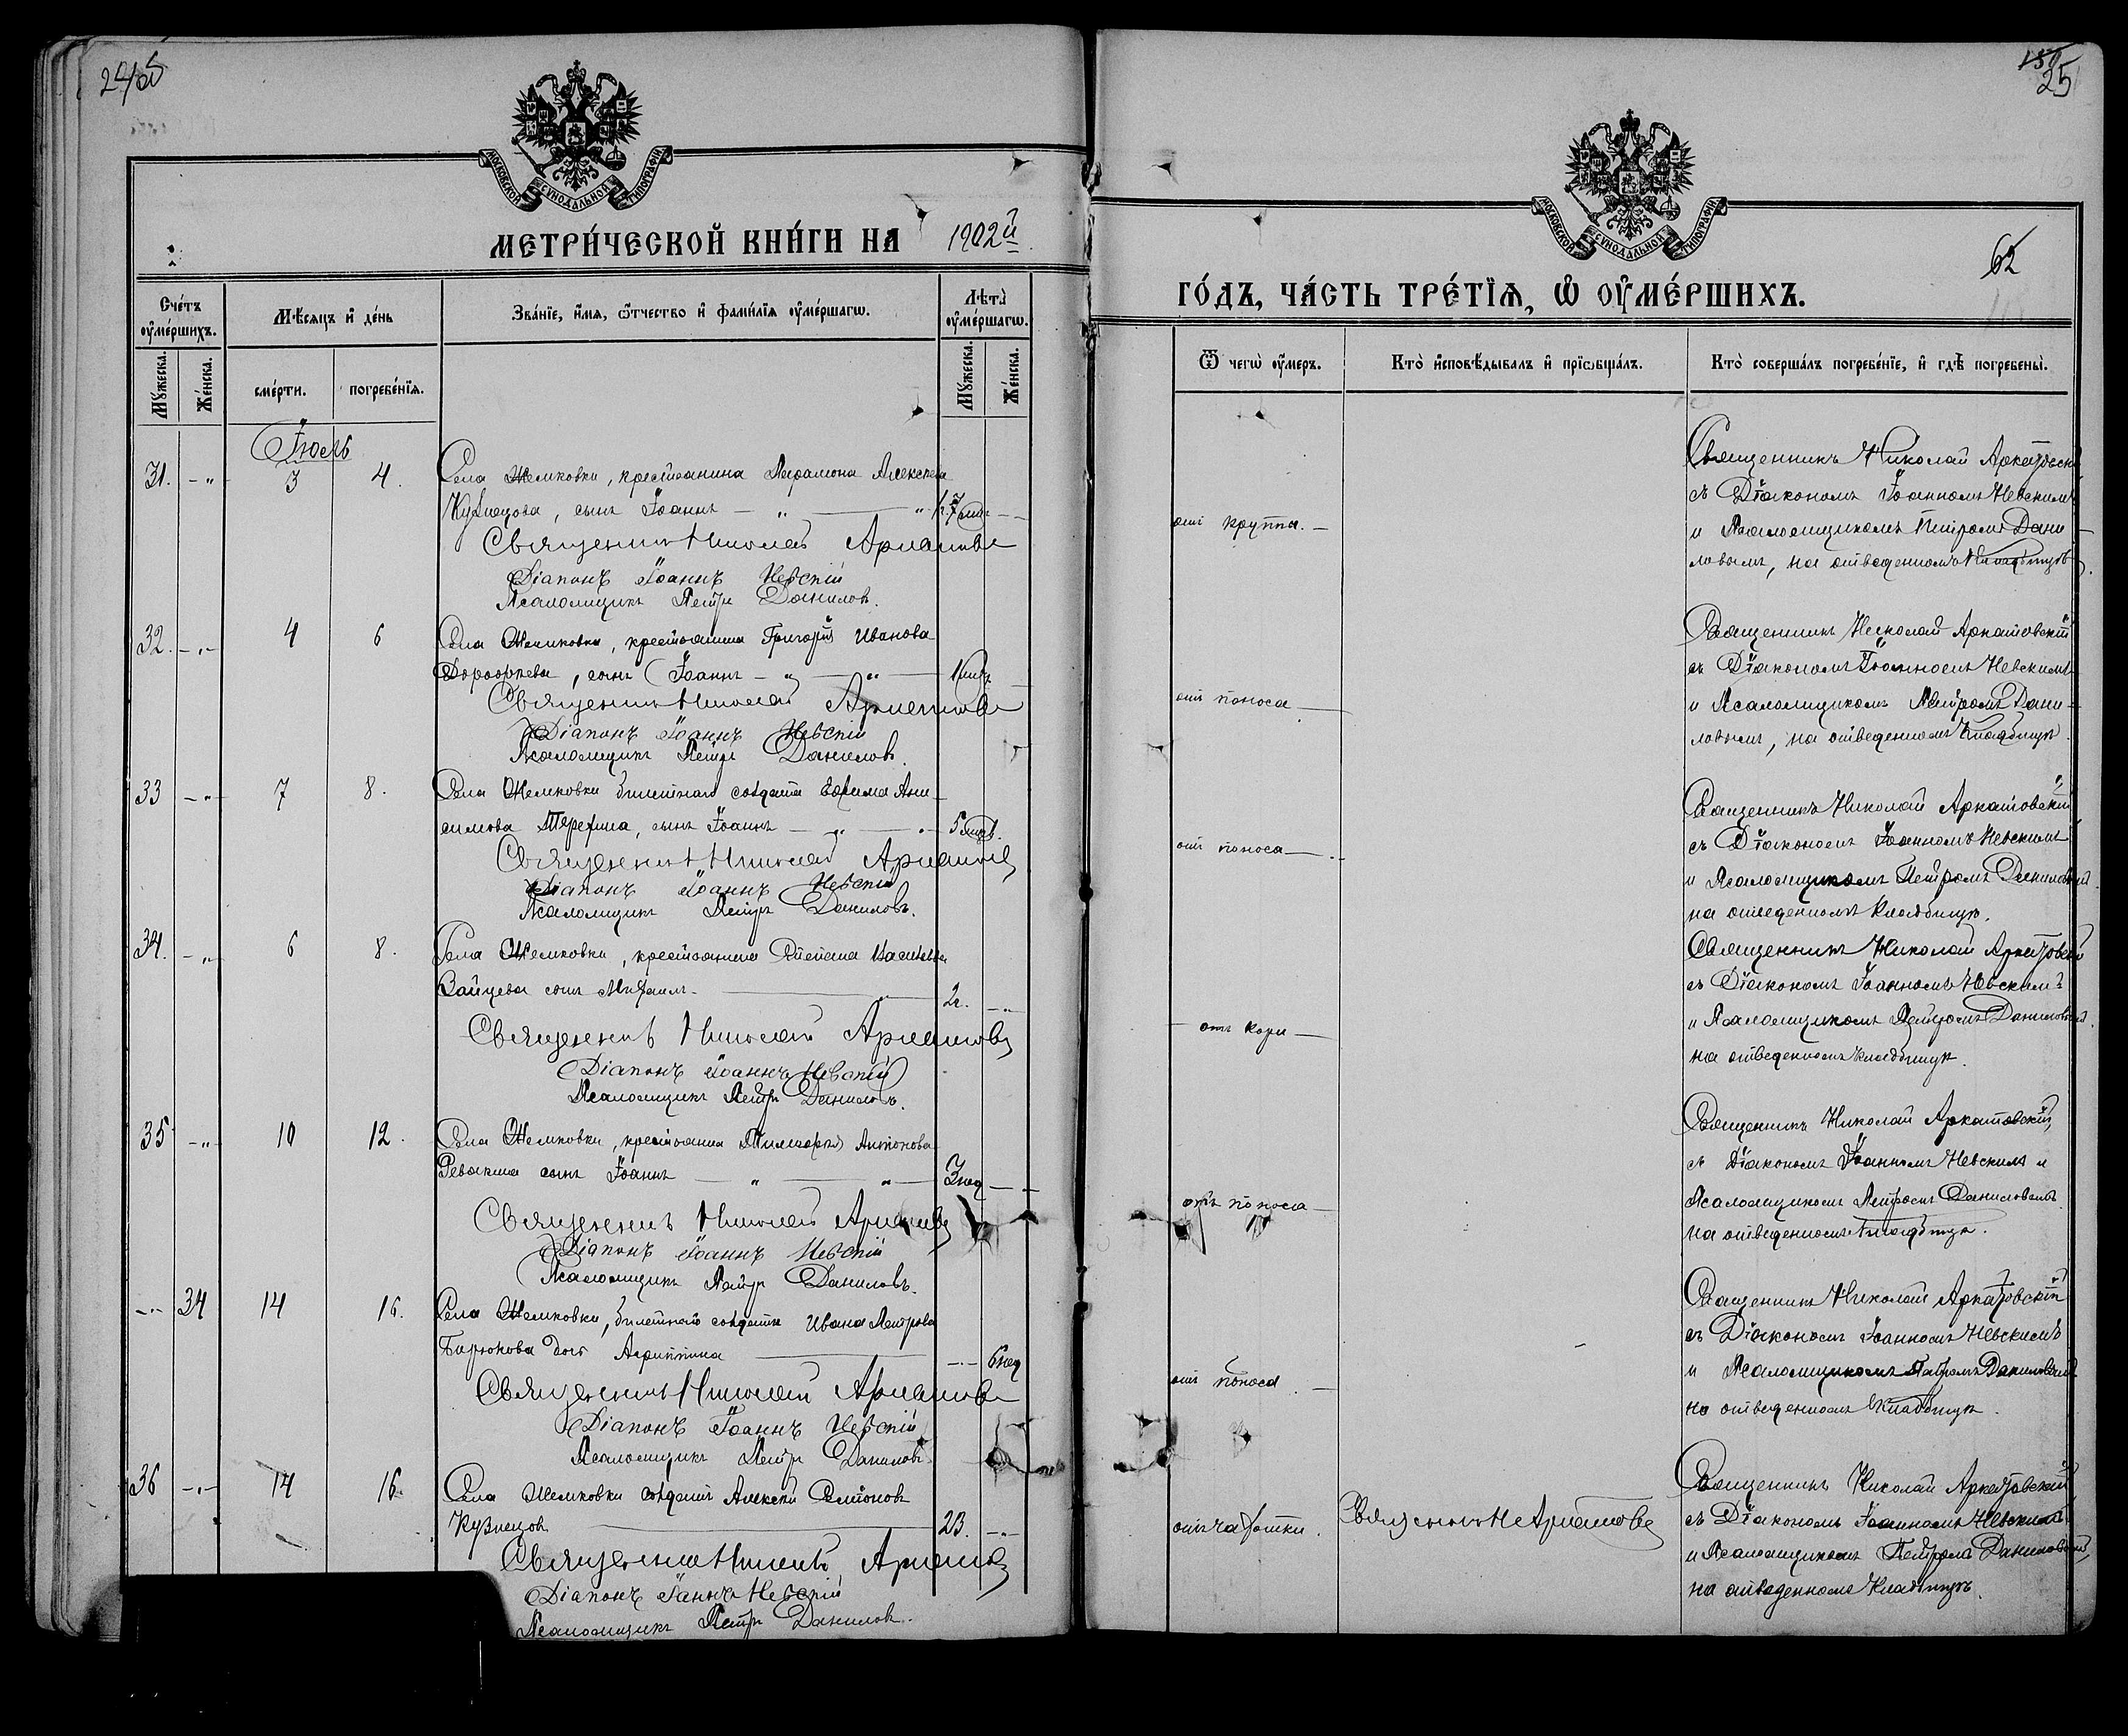 150
25
МОСКОВСКОЙ СѴНОДАЛЬНОЙ ТИПОГРАФІИ
МЕТРИ́ЧЕСКОЙ КНИ́ГИ НА 1902й
Сче́тъ оу҆ме́ршихъ.
Мѣ́сяцъ и҆ де́нь
Зва́нїе, и҆́мя, ѻ҆́тчество и҆ фами́лїя оу҆ме́ршагѡ.
Лѣ́та оу҆ме́ршагѡ.
Мꙋ́жеска.
Же́нска.
сме́рти.
погребе́нїя.
Мꙋ́жеска.
Же́нска.
Іюль
31. - „ 3 4. Села Жемковки, крестьянина Парамона Алексеева
Кузнецова, сынъ Іоаннъ — „ — „
Священникъ Николай Аркатовс
Діаконъ Іоаннъ Невскій
Псаломщикъ Петръ Даниловъ.
32. - „ - 4 6 Села Жемковки, крестьянина Григорія Иванова
Дорофеева, сынъ Іоаннъ — „ — „ — 1 мѣс.
Священникъ Николай Аркатовс
Діаконъ Іоаннъ Невскій
Псаломщикъ Петръ Даниловъ.
33 - „ - 7 8. Села Жемковки билетнаго солдата Ефима Ани-
симова Терехина, сынъ Іоаннъ — „ — „ - 5 мѣс.
Священникъ Николай Аркатов
Діаконъ Іоаннъ Невскій
Псаломщикъ Петръ Даниловъ.
34. - „ 6 8. Села Жемковки, крестьянина Степана Васильева
Зайцева сынъ Михаилъ — „ — 2 г. - „
Священникъ Николай Аркатовс
Діаконъ Іоаннъ Невскій
Псаломщикъ Петръ Даниловъ.
35 - „ - 10 12. Села Жемковки, крестьянина Тимофея Антонова
сынъ Іоаннъ — „ — „ — 3 нед — „
Священникъ Николай Аркатовс
Діаконъ Іоаннъ Невскій
Псаломщикъ Петръ Даниловъ.
- „ - 34 14 16. Села Жемковки, билетнаго солдата Ивана Петрова
Бирюкова дочь Агриппина — - „ - 6 нед
Священникъ Николай Аркатовс
Діаконъ Іоаннъ Невскій
Псаломщикъ Петръ Даниловъ.
36 - „ - 14 16. Села Жемковки солдатъ Алексѣй Семіоновъ
Кузнецов — 23. - „ -
Священникъ Николай Аркатов
Діаконъ Іоаннъ Невскій
Псаломщикъ Петръ Даниловъ.
МОСКОВСКОЙ СѴНОДАЛЬНОЙ ТИПОГРАФІИ
62
ГО́ДЪ, ЧА́СТЬ ТРЕ́ТЇЯ, Ѡ҆ ОУ҆МЕ́РШИХЪ.
Ѿ чегѡ̀ оу҆́меръ.
Кто̀ и҆сповѣ́дывалъ и҆ прїѡбща́лъ.
Кто̀ соверша́лъ погребе́нїе, и҆ гдѣ̀ погребены̀.
Священникъ Николай Аркатовскій
съ Діакономъ Іоанномъ Невскимъ
отъ круппа. —
и Псаломщикомъ Петромъ Дани-
ловымъ, на отведенномъ кладбищѣ.
Священникъ Николай Аркатовскій
съ Діакономъ Іоанномъ Невскимъ
отъ поноса —
и Псаломщикомъ Петромъ Дани-
ловымъ, на отведенномъ кладбищѣ.
Священникъ Николай Аркатовскій
отъ поноса —
съ Діакономъ Іоанномъ Невскимъ
и Псаломщикомъ Петромъ Даниловымъ
на отведенномъ кладбищѣ.
Священникъ Николай Аркатовскій
съ Діакономъ Іоанномъ Невскимъ
отъ кори —
и Псаломщикомъ Петромъ Даниловымъ
на отведенномъ кладбищѣ.
Священникъ Николай Аркатовскій,
съ Діакономъ Іоанномъ Невскимъ и
отъ поноса —
Псаломщикомъ Петромъ Даниловымъ
на отведенномъ кладбищѣ.
Священникъ Николай Аркатовскій
съ Діакономъ Іоанномъ Невскимъ
отъ поноса. —
и Псаломщикомъ Петромъ Даниловымъ
на отведенномъ кладбищѣ.
Священникъ Николай Аркатовскій
отъ чахотки. Священникъ Н Аркатовс
съ Діакономъ Іоанномъ Невскимъ
и Псаломщикомъ Петромъ Даниловымъ,
на отведенномъ кладбищѣ.